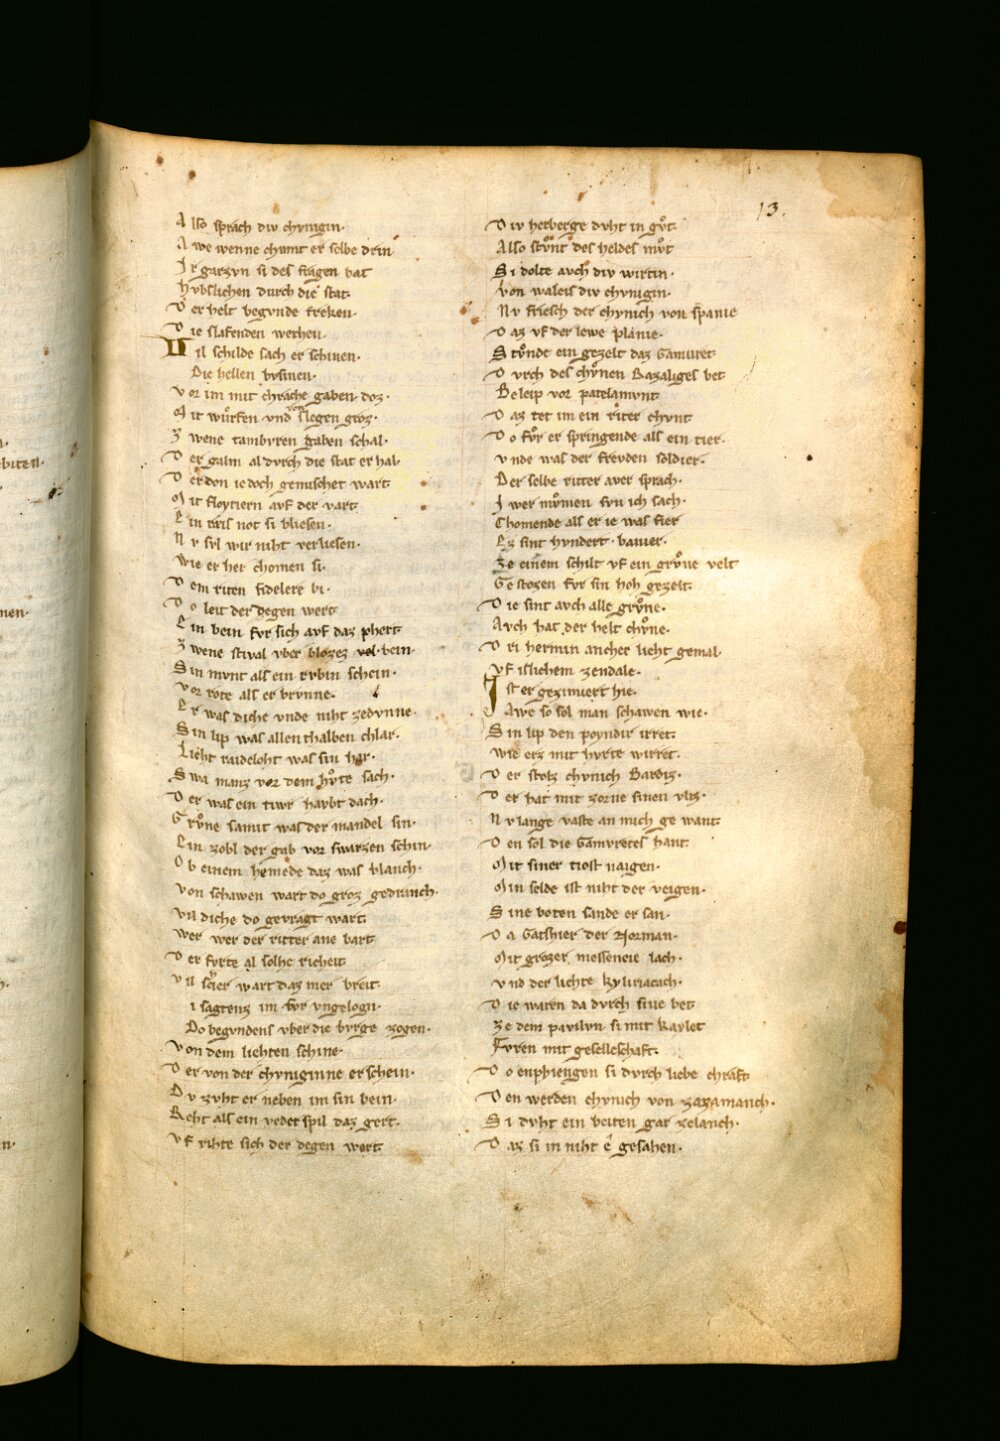 13.
Also sprach div chvnigin·
Awe wenne chumt er selbe drin·
Ir garzvn si des fragen bat
Hvbslichen durch die stat·
Der helt begvnde streken·
Die slafenden wecken·
Vil schilde sach er schinen·
Die hellen bvsinen·
Vor im mit chrache gaben doz·
Mit wůrfen vnd slegen groz·
Zwene tambvren gaben schal·
Der galm al dvrch die stat erhal·
Der don iedoch gemischet wart
Mit floytiern avf der vart
Ein rais not si bliesen·
Nv svl wir niht verliesen·
Wie er her chomen si·
Dem riten fidelere bi·
Do leit der degen wert
Ein bein fvr sich avf daz phert
Zwene stival vber blozez bein·
Sin mvnt als ein rvbin schein·
Vor rote als er brvnne·
Er was diche vnde niht zedvnne·
Sin lip was allenthalben chlar·
Lieht raideloht was sin har·
Swa manz vor dem hůte sach·
Der was ein tiwr havbt dach·
Grůne samit was der mandel sin·
Ein zobl der gab vor swarzen schin·
Ob einem hemede daz was blanch·
Von schawen wart do groz gedranch·
Vil diche do gevragt wart
Wer wer der ritter ane bart
Der fvrte al solhe richeit
Vil scier wart daz mer breit·
i sagtenz im fvr vngelogn·
Do begvndens vber die brvge zogen·
Von dem liehten schine·
Der von der chvniginne erschein·
Dv zvht er neben im sin bein·
Reht als ein vederspil daz gert·
Vf rihte sich der degen wert
Div herberge dvht in gůt·
Also stůnt des heldes můt
Si dolte avch div wirtin·
Von waleis div chvnigin·
Nv friesch der chvnich von spanie
Daz vf der lewe planie·
Stůnde ein gezelt daz Gamuret
Dvrch des chůnen Razaliges bet
Beleip vor patelamvnt
Daz tet im ein riter chvnt
Do fůr er springende als ein tier·
Vnde was der frevden soldier·
Der selbe ritter aver sprach·
Iwer můmen svn ich sach·
Chomende als er ie was fier
Ez sint hvndert· banier·
Ze einem schilt vf ein grůne velt
Gestozen fvr sin hoh gezelt·
Die sint avch alle grůne·
Avch hat der helt chůne·
Dri hermin ancher lieht gemal·
Vf islichem zendale·
Ist er gezimiert hie·
Awe so sol man schawen wie·
Sin lip den poyndir irret
Wie erz mit hvrte wirret·
Der stolz chvnich Bardiz·
Der hat mit zorne sinen vliz·
Nv lange vaste an mich gewant
Den sol die Gamvretes hant
Mit siner tiost naigen·
Min selde ist niht der veigen·
Sine boten sande er san·
Da Gatshier der Norman·
Mit grozer messeneie lach·
Vnd der liehte kyliriacach·
Die waren da dvrch sine bet
Ze dem pavilvn· si mit kaylet
Fvren mit geselleschaft·
Do enphiengen si dvrch liebe chraft
Den werden chvnich von zazamanch·
Si dvht ein beiten gar zelanch·
Daz si in niht ê gesahen·